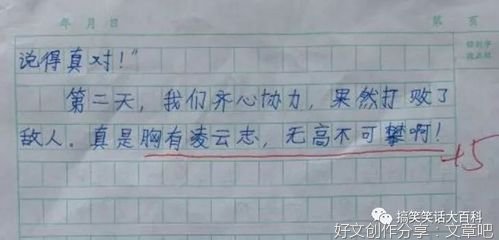 年 月 日 第 页
说得真对！”
第二天，我们齐心协力，果然打败了
敌人。真是胸有凌云志，无高不可攀啊！
+5
搞笑笑话大百科
好文创作分享：文章吧